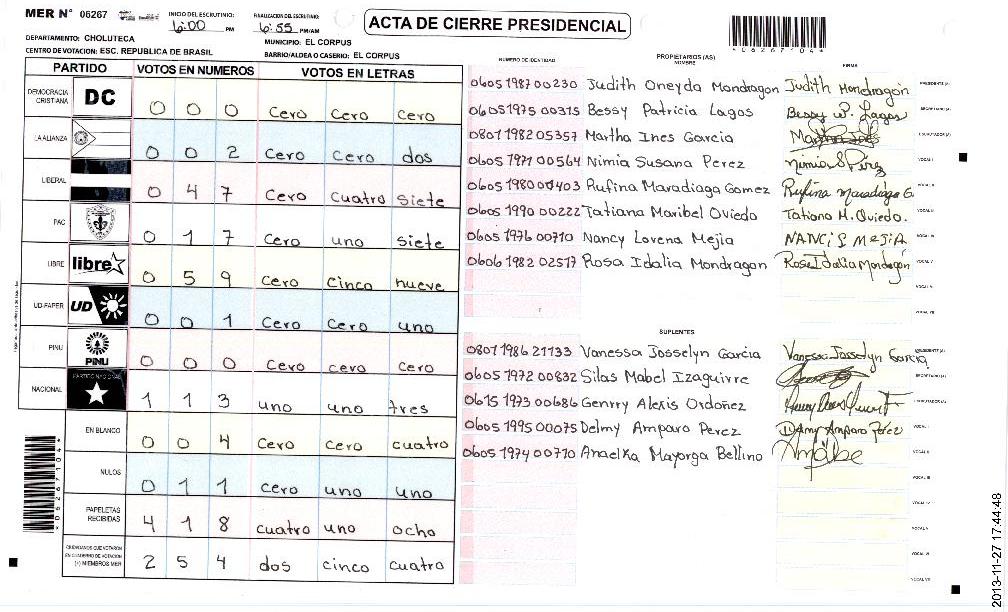 MER N° 06267
INICIO DEL ESCRUTINIO: 6:00 PM
FINALIZACION DEL ESCRUTINIO: 6:55 PM/AM
ACTA DE CIERRE PRESIDENCIAL
*062671044*
DEPARTAMENTO: CHOLUTECA
MUNICIPIO: EL CORPUS
CENTRO DE VOTACION: ESC. REPUBLICA DE BRASIL
BARRIO/ALDEA O CASERIO: EL CORPUS
PARTIDO VOTOS EN NUMEROS VOTOS EN LETRAS
DEMOCRACIA CRISTIANA DC 0 0 0 cero cero cero
LA ALIANZA 0 0 2 cero cero dos
LIBERAL 0 4 7 cero cuatro siete
PAC 0 1 7 cero uno siete
LIBRE libre 0 5 9 cero cinco nueve
UD-FAPER UD 0 0 1 cero cero uno
PINU PINU 0 0 0 cero cero cero
NACIONAL PARTIDO NACIONAL 1 1 3 uno uno tres
EN BLANCO 0 0 4 cero cero cuatro
NULOS 0 1 1 cero uno uno
PAPELETAS RECIBIDAS 4 1 8 cuatro uno ocho
CIUDADANOS QUE VOTARON EN CUADERNO DE VOTACION (+) MIEMBROS MER 2 5 4 dos cinco cuatro
NUMERO DE IDENTIDAD PROPIETARIOS (AS) NOMBRE FIRMA
0605 1987 00230 Judith Oneyda Mondragon Judith Mondragón PRESIDENTE (A)
0605 1975 00315 Bessy Patricia Lagos Bessy P. Lagos SECRETARIO (A)
0801 1982 05357 Martha Ines Garcia ESCRUTADOR (A)
0605 1971 00564 Nimia Susana Perez Nimia S Pérez VOCAL I
0605 1980 00403 Rufina Maradiaga Gomez Rufina Maradiaga G. VOCAL II
0605 1990 00222 Tatiana Maribel Oviedo Tatiana M. Oviedo. VOCAL III
0605 1976 00710 Nancy Lorena Mejia NANCI S MEJIA VOCAL IV
0606 1982 02517 Rosa Idalia Mondragon Rosa Idalia Mondragón VOCAL V
VOCAL VI
VOCAL VII
SUPLENTES
0801 1986 21133 Vanessa Josselyn Garcia Vanessa Josselyn Garcia PRESIDENTE (A)
0605 1972 00832 Silas Mabel Izaguirre SECRETARIO (A)
0615 1973 00686 Genrry Alexis Ordoñez ESCRUTADOR (A)
0605 1995 00075 Delmy Amparo Perez Delmy Amparo Pérez VOCAL I
0605 1974 00710 Anaelka Mayorga Bellino VOCAL II
VOCAL III
VOCAL IV
VOCAL V
VOCAL VI
VOCAL VII
*062671044*
2013-11-27 17:44:48